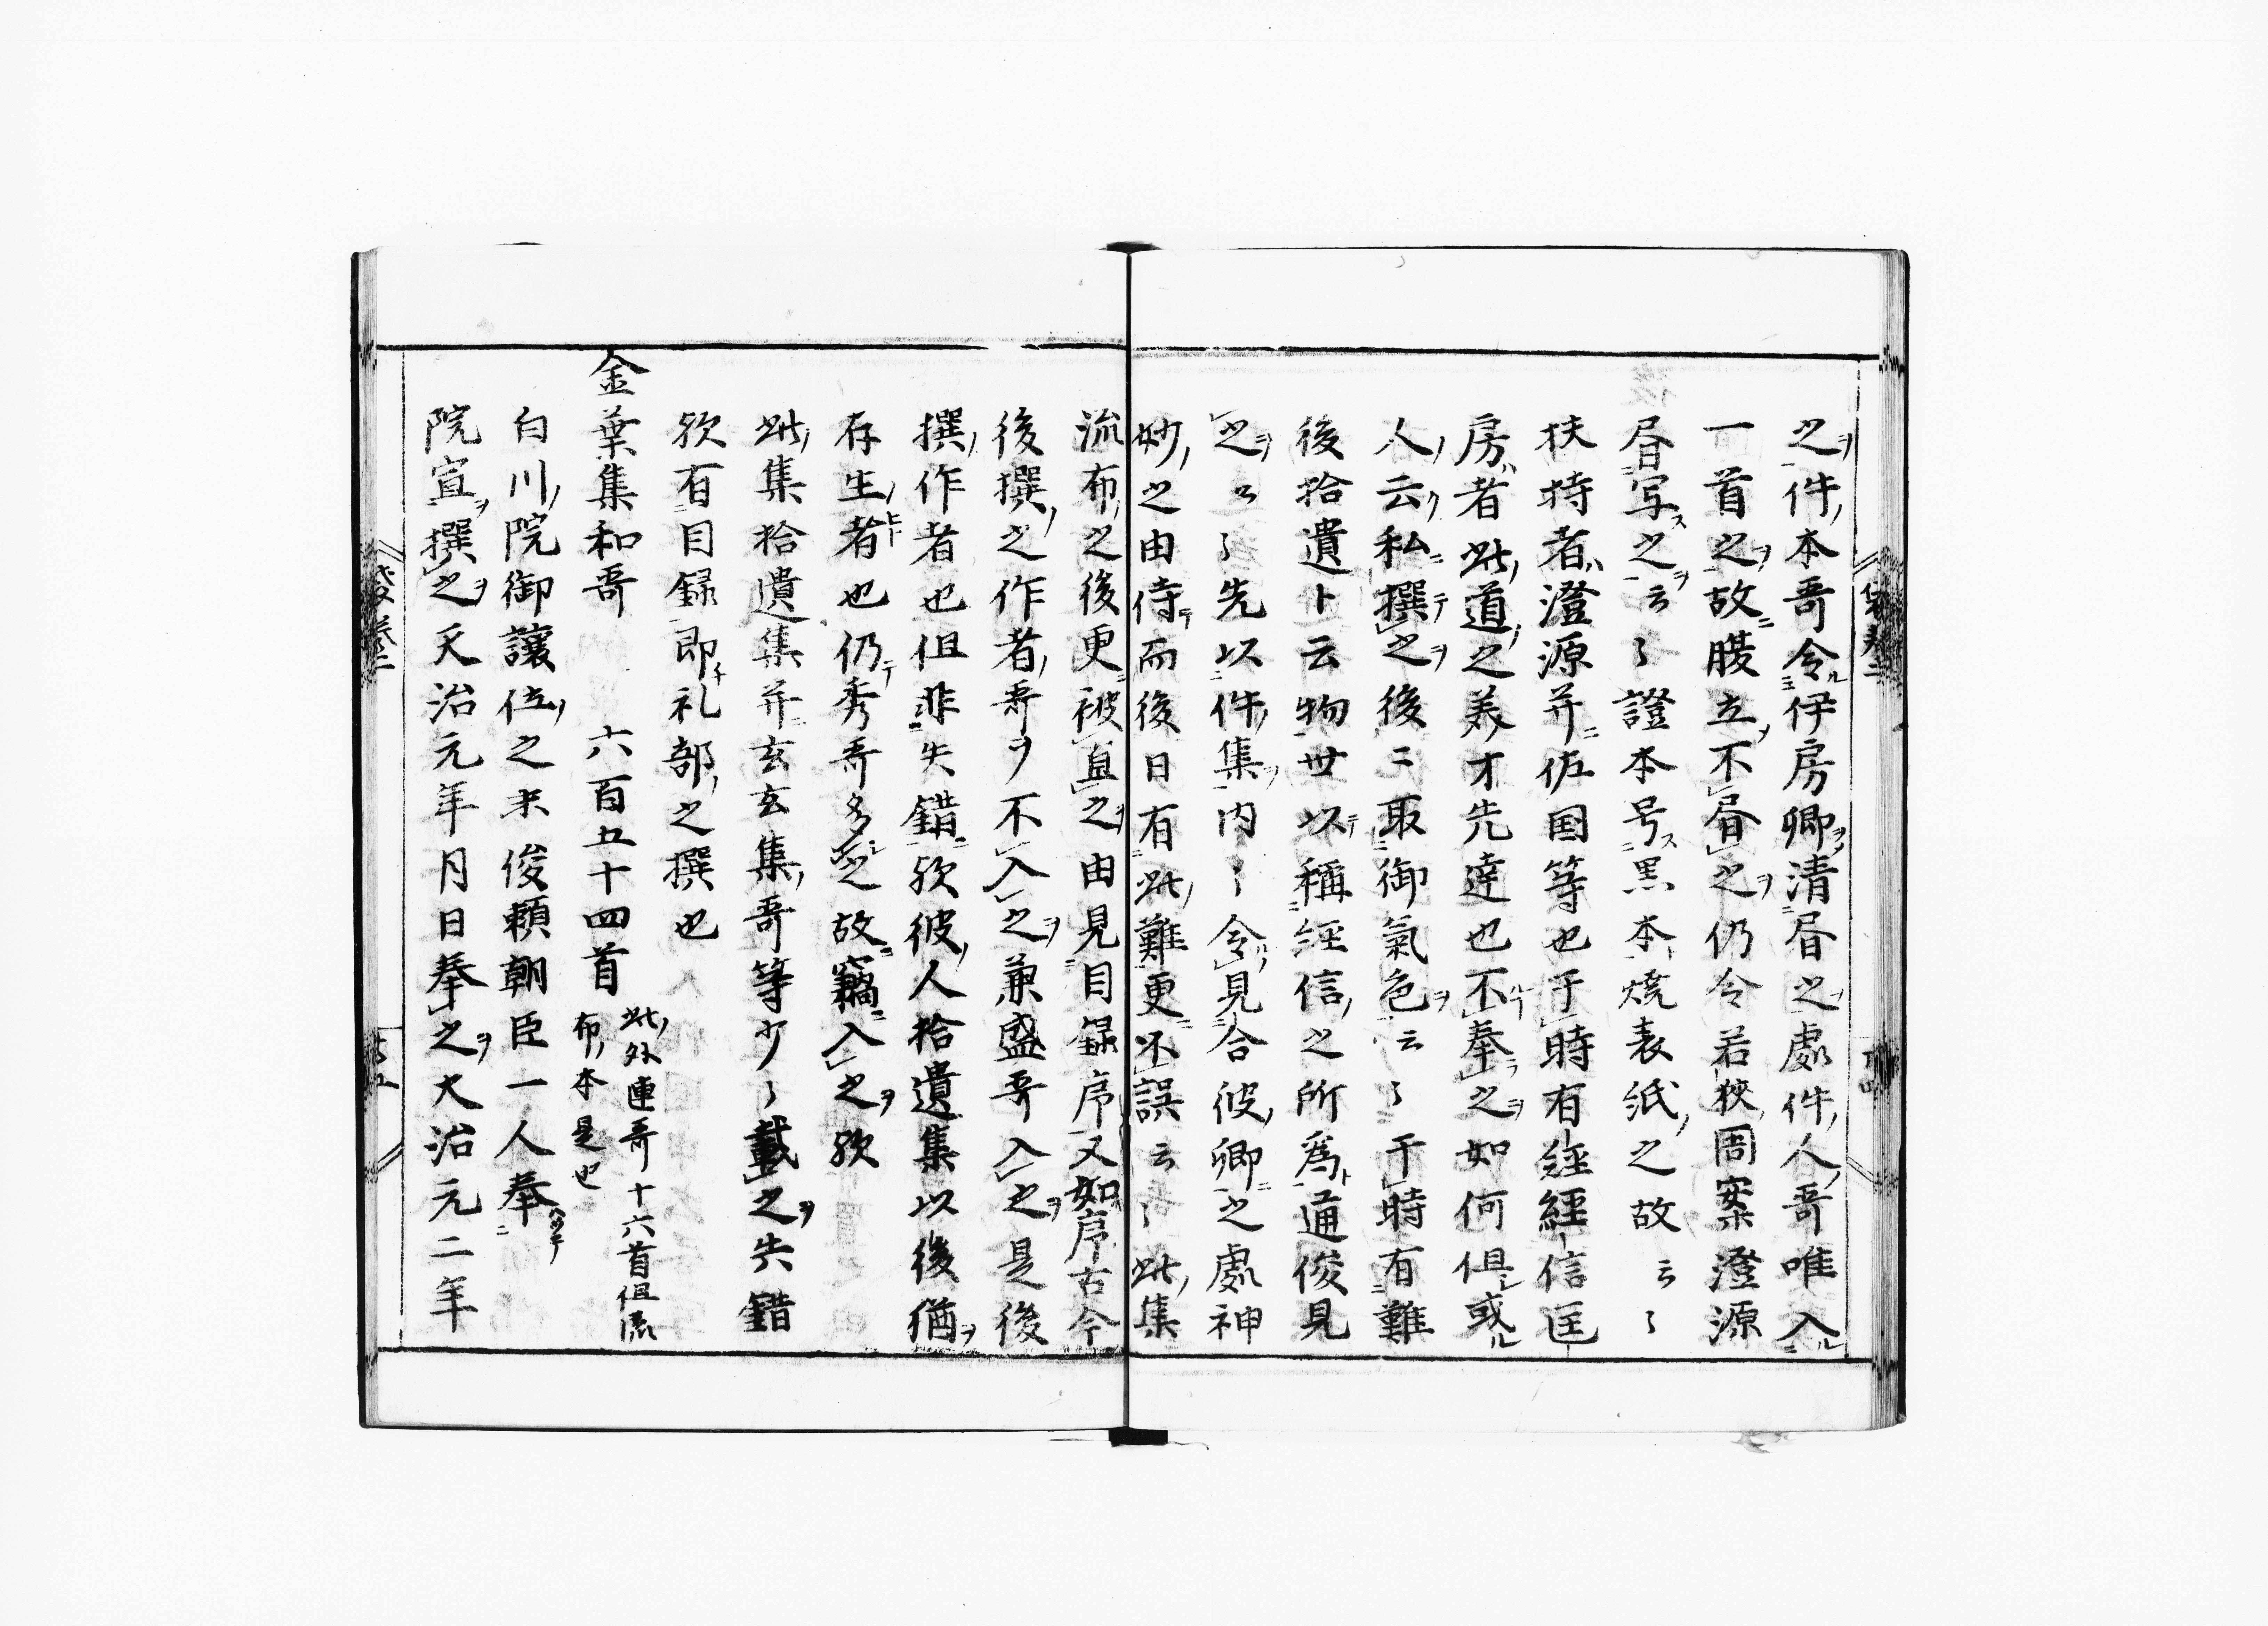 之件本哥令伊房卿清昼之處件人哥唯入
一首之故腹立不昼之仍令若狭因案澄源
昼写之云〻證本号黒本焼表紙之故云〻
扶持者澄源并佐国等也于時有経経信匡
房者此道之美才先達也不奉之如何但或
人云私撰之後ニ取御氣色云〻于時有難
後拾遺ト云物世以稱経信之所為通俊見
之云〻先以件集内〻令見合彼卿之處神
妙之由侍而後日有此難更不誤云〻此集
流布之後更被直之由見目録序又如序古今
後撰之作者哥ヲ不入之兼盛哥入之是後
撰作者也但非失錯欤彼人拾遺集以後猶
存生者也仍秀哥多之故竊入之欤
此集拾遺集并玄玄集哥等少〻載之失錯
欤有目録即礼部之撰也
金葉集和哥　六百五十四首
此外連哥十六首但流
布本是也
白川院御讓位之末俊頼朝臣一人奉
院宣撰之天治元年月日奉之大治元二年